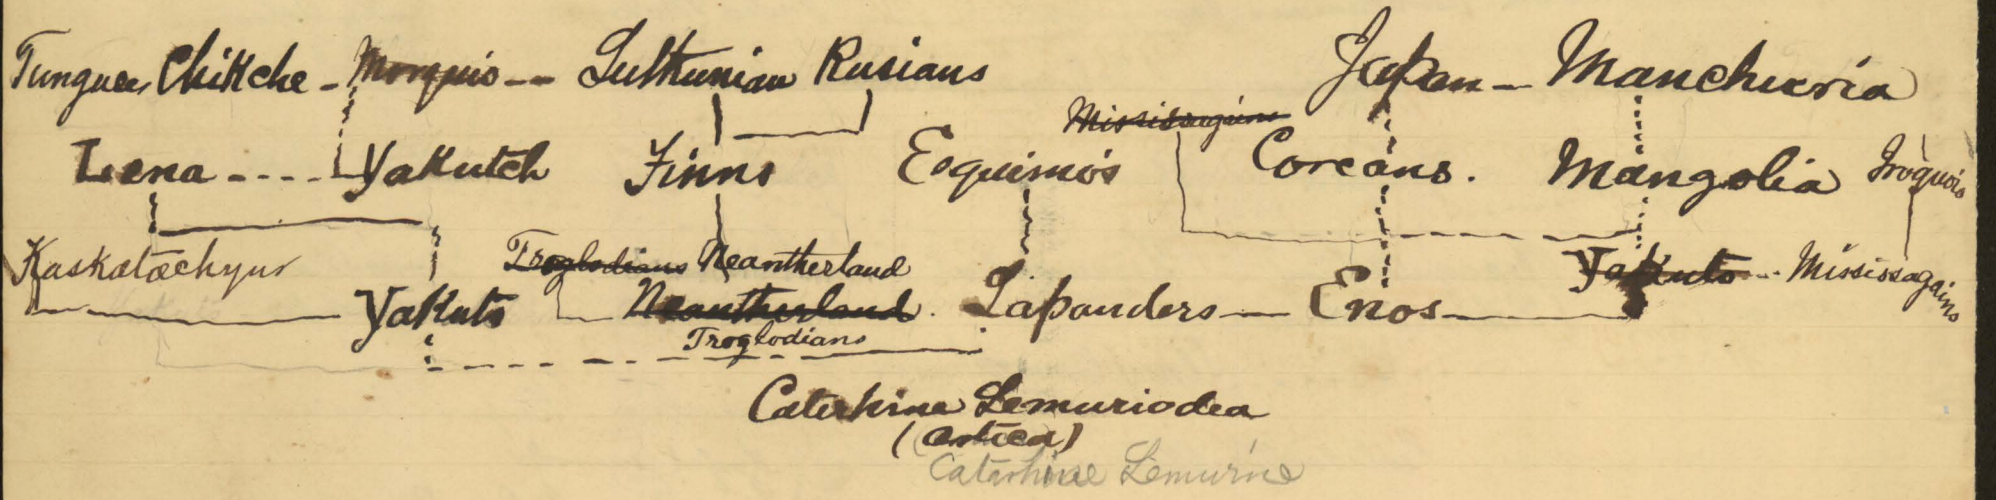 Tunguse, Chikche - Morquis -- Lulthunian Rusians Japan -- Manchuria
Mississagains
Lena ---- Yakutch Finns Esquimo's Coreans. Mangolia Iroquois
Kaskatachyus Troglodians Neantherland Yakuts -- Mississagains
Yakuts Neantherland Lapanders -- Enos
Troglodians
Catarhine Lemuriodea
(Artica)
Catarhine Lemurine